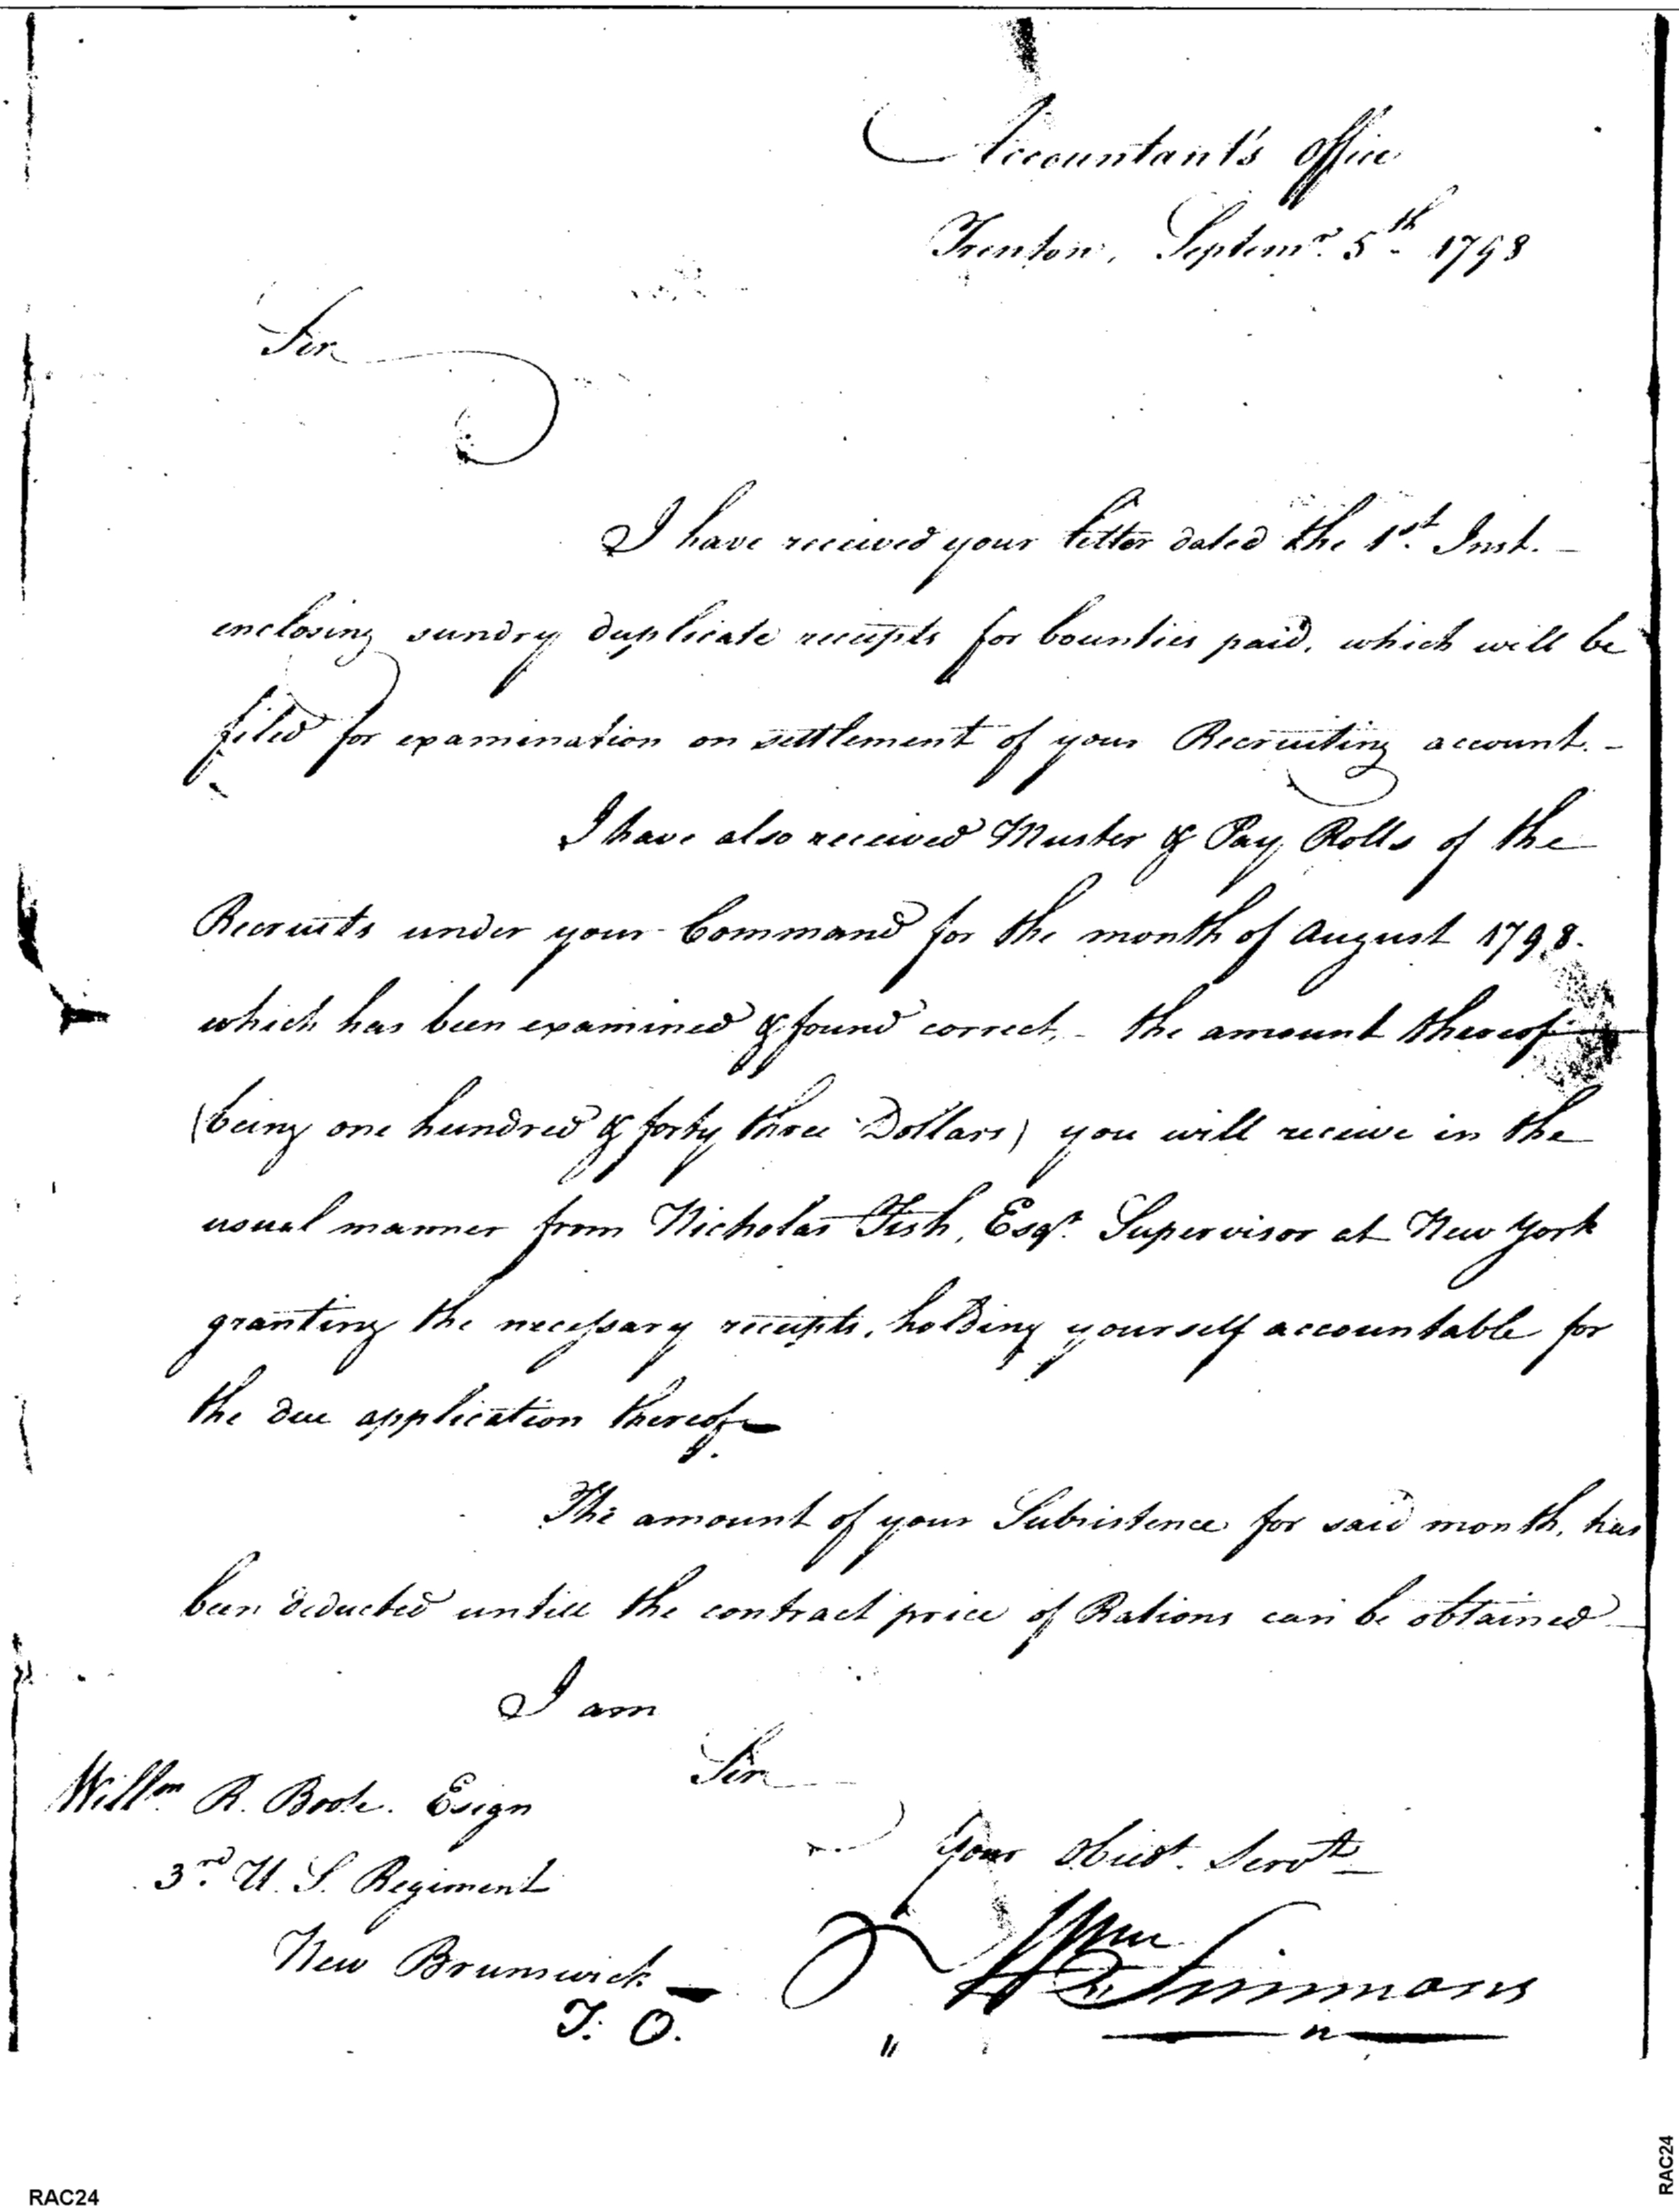 Accountant's Office
Trenton, Septemr. 5th 1798
Sir
I have received your letter dated the 1st. Inst. -
enclosing sundry duplicate receipts for bounties paid, which will be
filed for examination on settlement of your Recruiting account. -
I have also received Muster & Pay Rolls of the
Recruits under your Command for the month of August 1798.
which has been examined & found correct, - the amount thereof
(being one hundred & forty three Dollars) you will receive in the
usual manner from Nicholas Fish, Esqr. Supervisor at New York
granting the necessary receipts, holding yourself accountable for
the due application thereof
The amount of your Subsistence for said month, has
been deducted untill the contract price of Rations can be obtained
I am
Sir
Willm R. Boote. Esign
Your Obedt. Servt
3rd. U. S. Regiment
Wm Simmons
New Brunswick
RAC24
RAC24